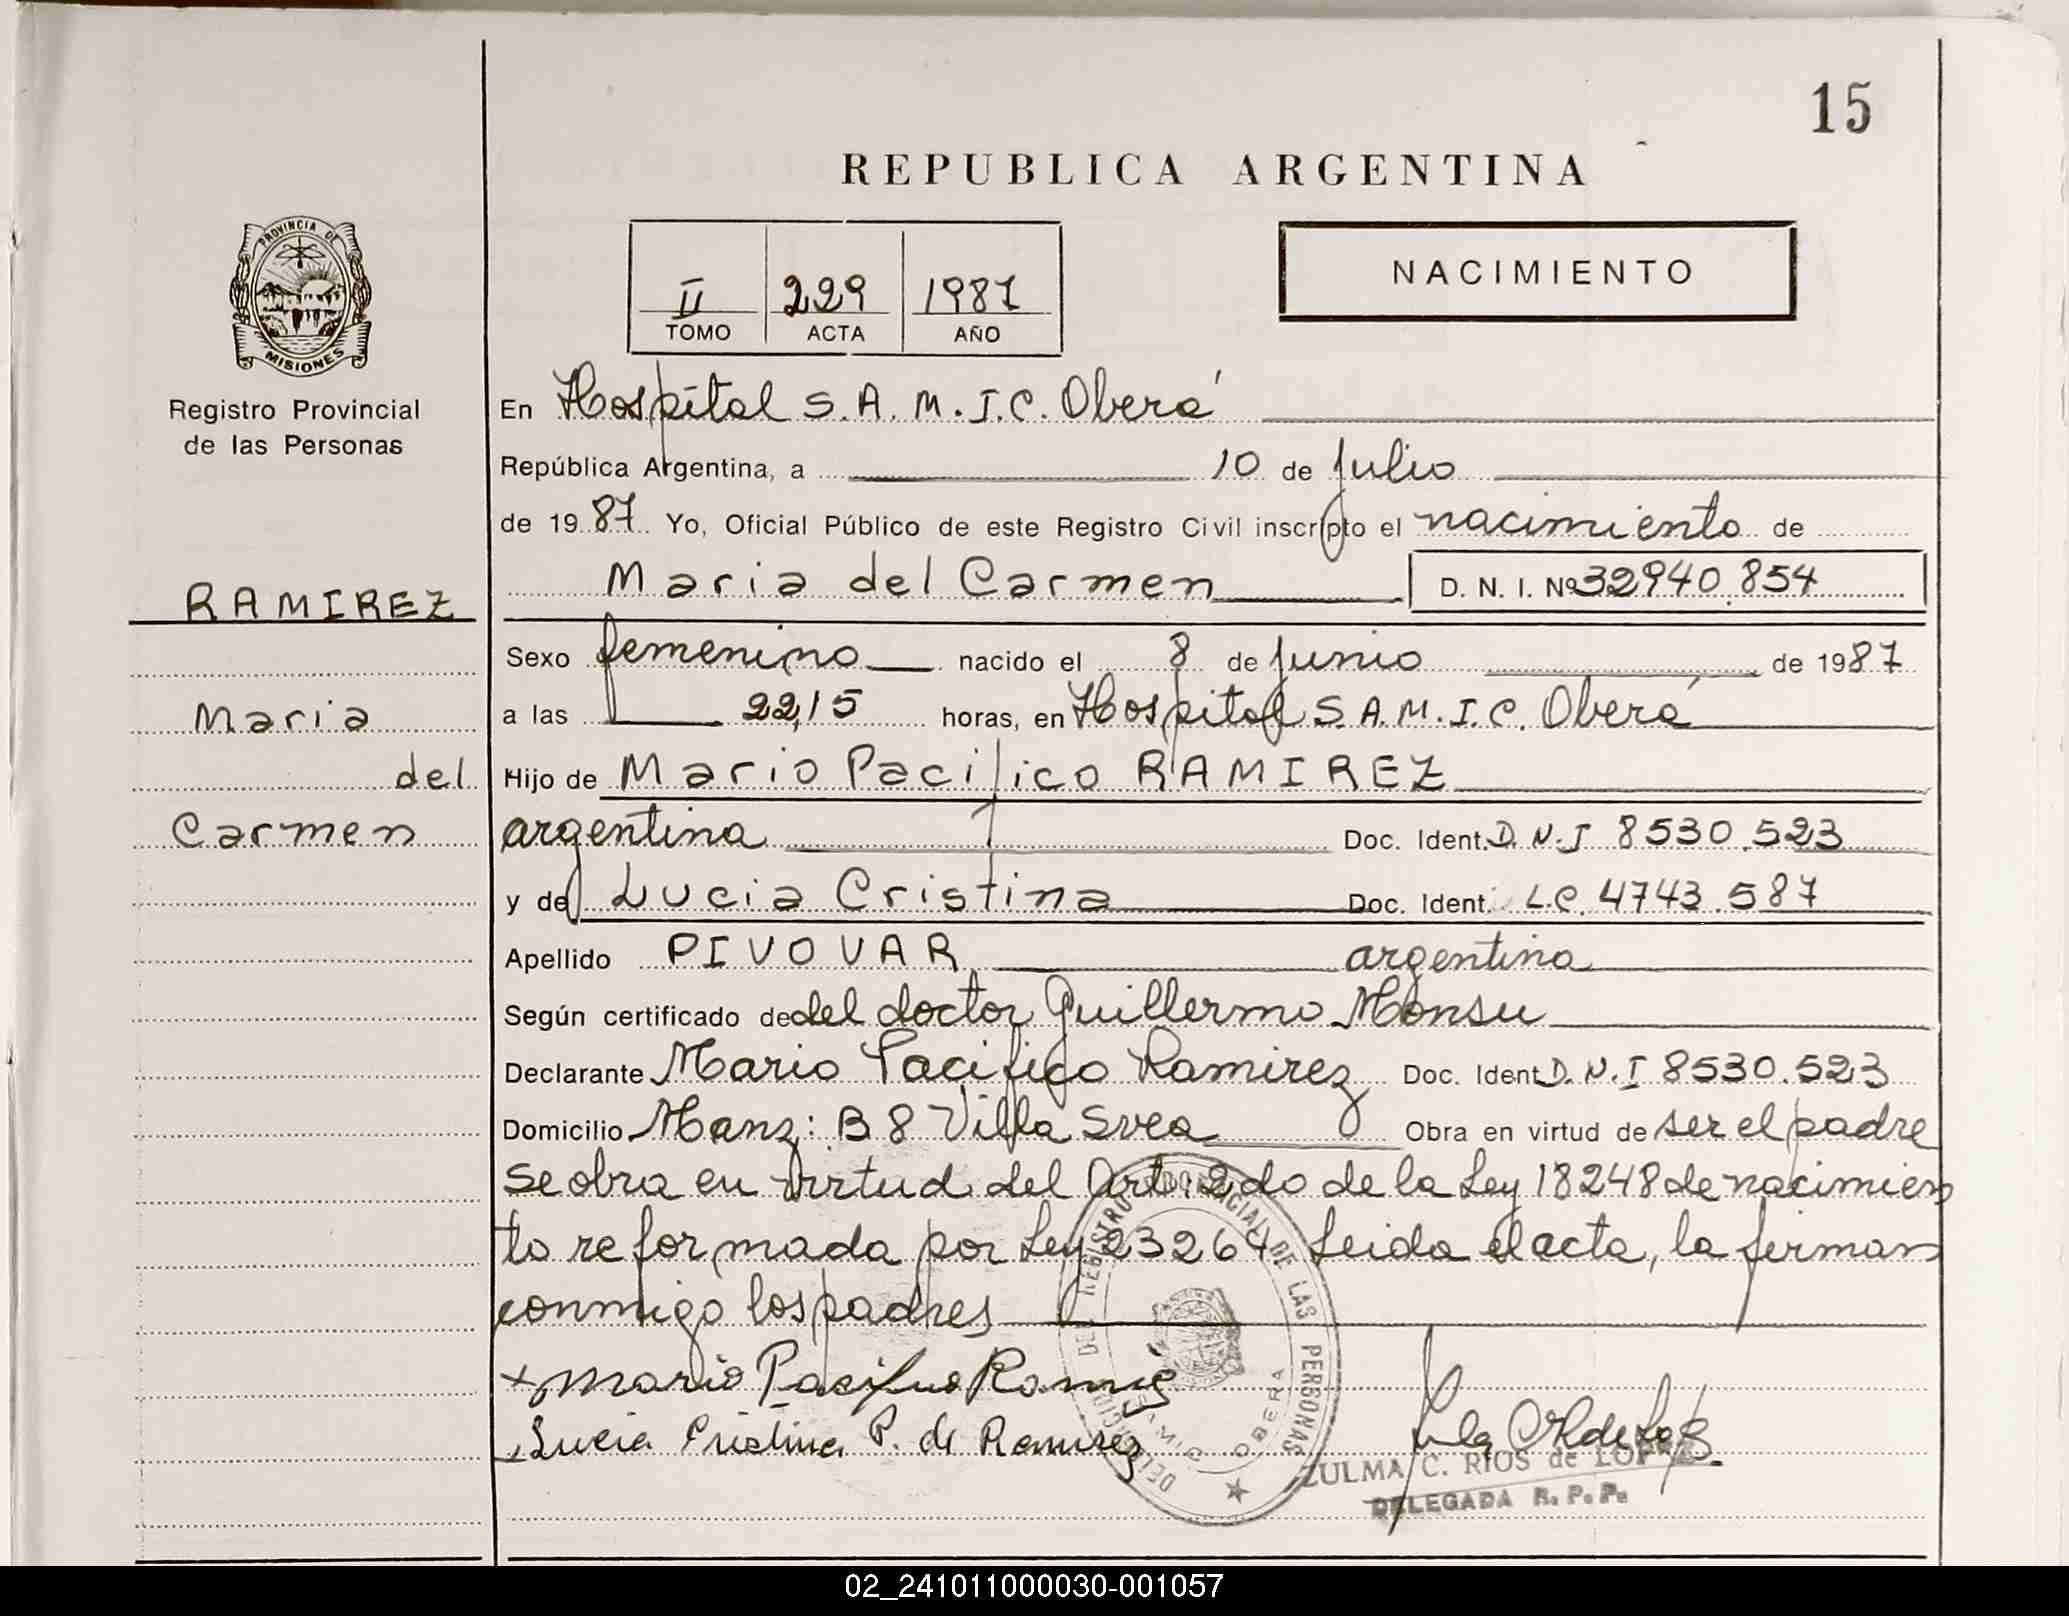 15
REPUBLICA ARGENTINA
PROVINCIA DE
MISIONES
Registro Provincial
de las Personas
II 229 1987
TOMO ACTA AÑO
NACIMIENTO
RAMIREZ
Maria
del
Carmen
En Hospital S.A.M.I.C. Oberá
República Argentina, a 10 de Julio
de 1987 Yo, Oficial Público de este Registro Civil inscripto el nacimiento de
Maria del Carmen D. N. I. Nº 32940.854
Sexo femenino nacido el 8 de Junio de 1987
a las 22,15 horas, en Hospital S.A.M.I.C. Oberá
Hijo de Mario Pacifico RAMIREZ
argentina Doc. Ident. D.N.I 8530.523
y de Lucia Cristina Doc. Ident. L.C. 4743.587
Apellido PIVOVAR argentina
Según certificado de del doctor Guillermo Monsu
Declarante Mario Pacifico Ramirez Doc. Ident D.N.I 8530.523
Domicilio Manz: B 8 Villa Svea Obra en virtud de ser el padre
se obra en virtud del Art. 2do de la Ley 18248 de nacimien
to reformada por Ley 23264 Leida el acta, la firman
conmigo los padres
Mario Pacifico Ramirez
Lucia Cristina P. de Ramirez
REGISTRO PROVINCIAL DE LAS PERSONAS
OBERA
ZULMA C. RIOS de LOPEZ
DELEGADA R. P. P.
02_241011000030-001057